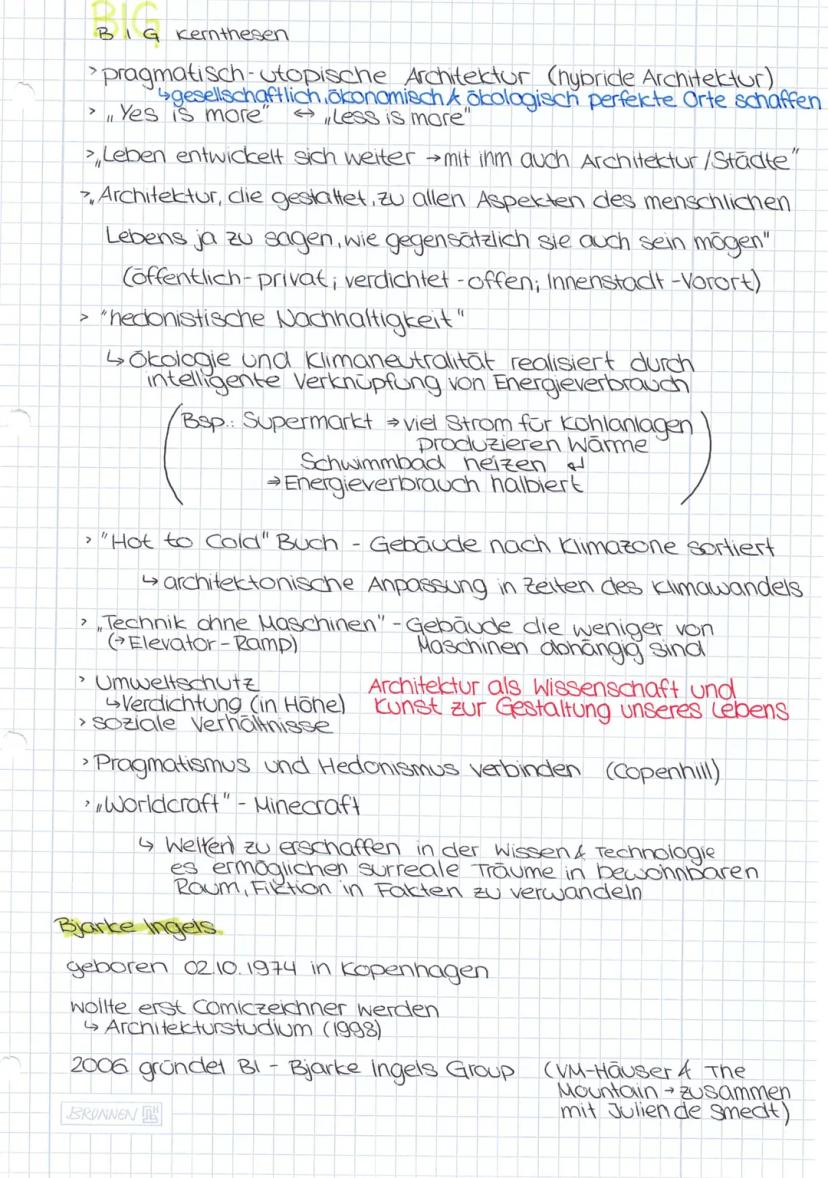 BIG
BIG Kernthesen
> pragmatisch-utopische Architektur (hybride Architektur)
↳ gesellschaftlich, ökonomisch & ökologisch perfekte Orte schaffen
> „Yes is more" ↔ „Less is more"
> „Leben entwickelt sich weiter → mit ihm auch Architektur / Städte"
> „Architektur, die gestattet, zu allen Aspekten des menschlichen
Lebens ja zu sagen, wie gegensätzlich sie auch sein mögen"
(öffentlich-privat; verdichtet-offen; Innenstadt-Vorort)
> "hedonistische Nachhaltigkeit"
↳ Ökologie und Klimaneutralität realisiert durch
intelligente Verknüpfung von Energieverbrauch
(Bsp.: Supermarkt → viel Strom für Kühlanlagen
produzieren Wärme
Schwimmbad heizen ↲
→ Energieverbrauch halbiert)
> "Hot to Cold" Buch - Gebäude nach Klimazone sortiert
↳ architektonische Anpassung in Zeiten des Klimawandels
> „Technik ohne Maschinen" - Gebäude die weniger von
(→ Elevator-Ramp) Maschinen abhängig sind
> Umweltschutz Architektur als Wissenschaft und
↳ Verdichtung (in Höhe) Kunst zur Gestaltung unseres Lebens
> soziale Verhältnisse
> Pragmatismus und Hedonismus verbinden (Copenhill)
> „Worldcraft" - Minecraft
↳ Welten zu erschaffen in der Wissen & Technologie
es ermöglichen surreale Träume in bewohnbaren
Raum, Fiktion in Fakten zu verwandeln
Bjarke Ingels
geboren 02.10.1974 in Kopenhagen
wollte erst Comiczeichner werden
↳ Architekturstudium (1998)
2006 gründet BI - Bjarke Ingels Group (VM-Häuser & The
Mountain → zusammen
mit Julien de Smedt)
BRUNNEN